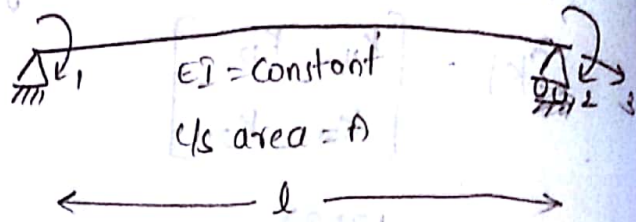 1
EI = constant
2
3
c/s area = A
l